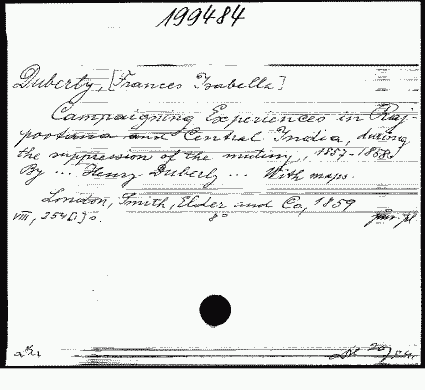 199484
Duberly, [Frances Isabella]
Campaigning Experiences in Raj-
pootana and Central India, during
the suppression of the mutiny, 1857-1858.
By ... Henry Duberly ... With maps.
London, Smith, Elder and Co, 1859
VIII, 254 [1] s. 8°